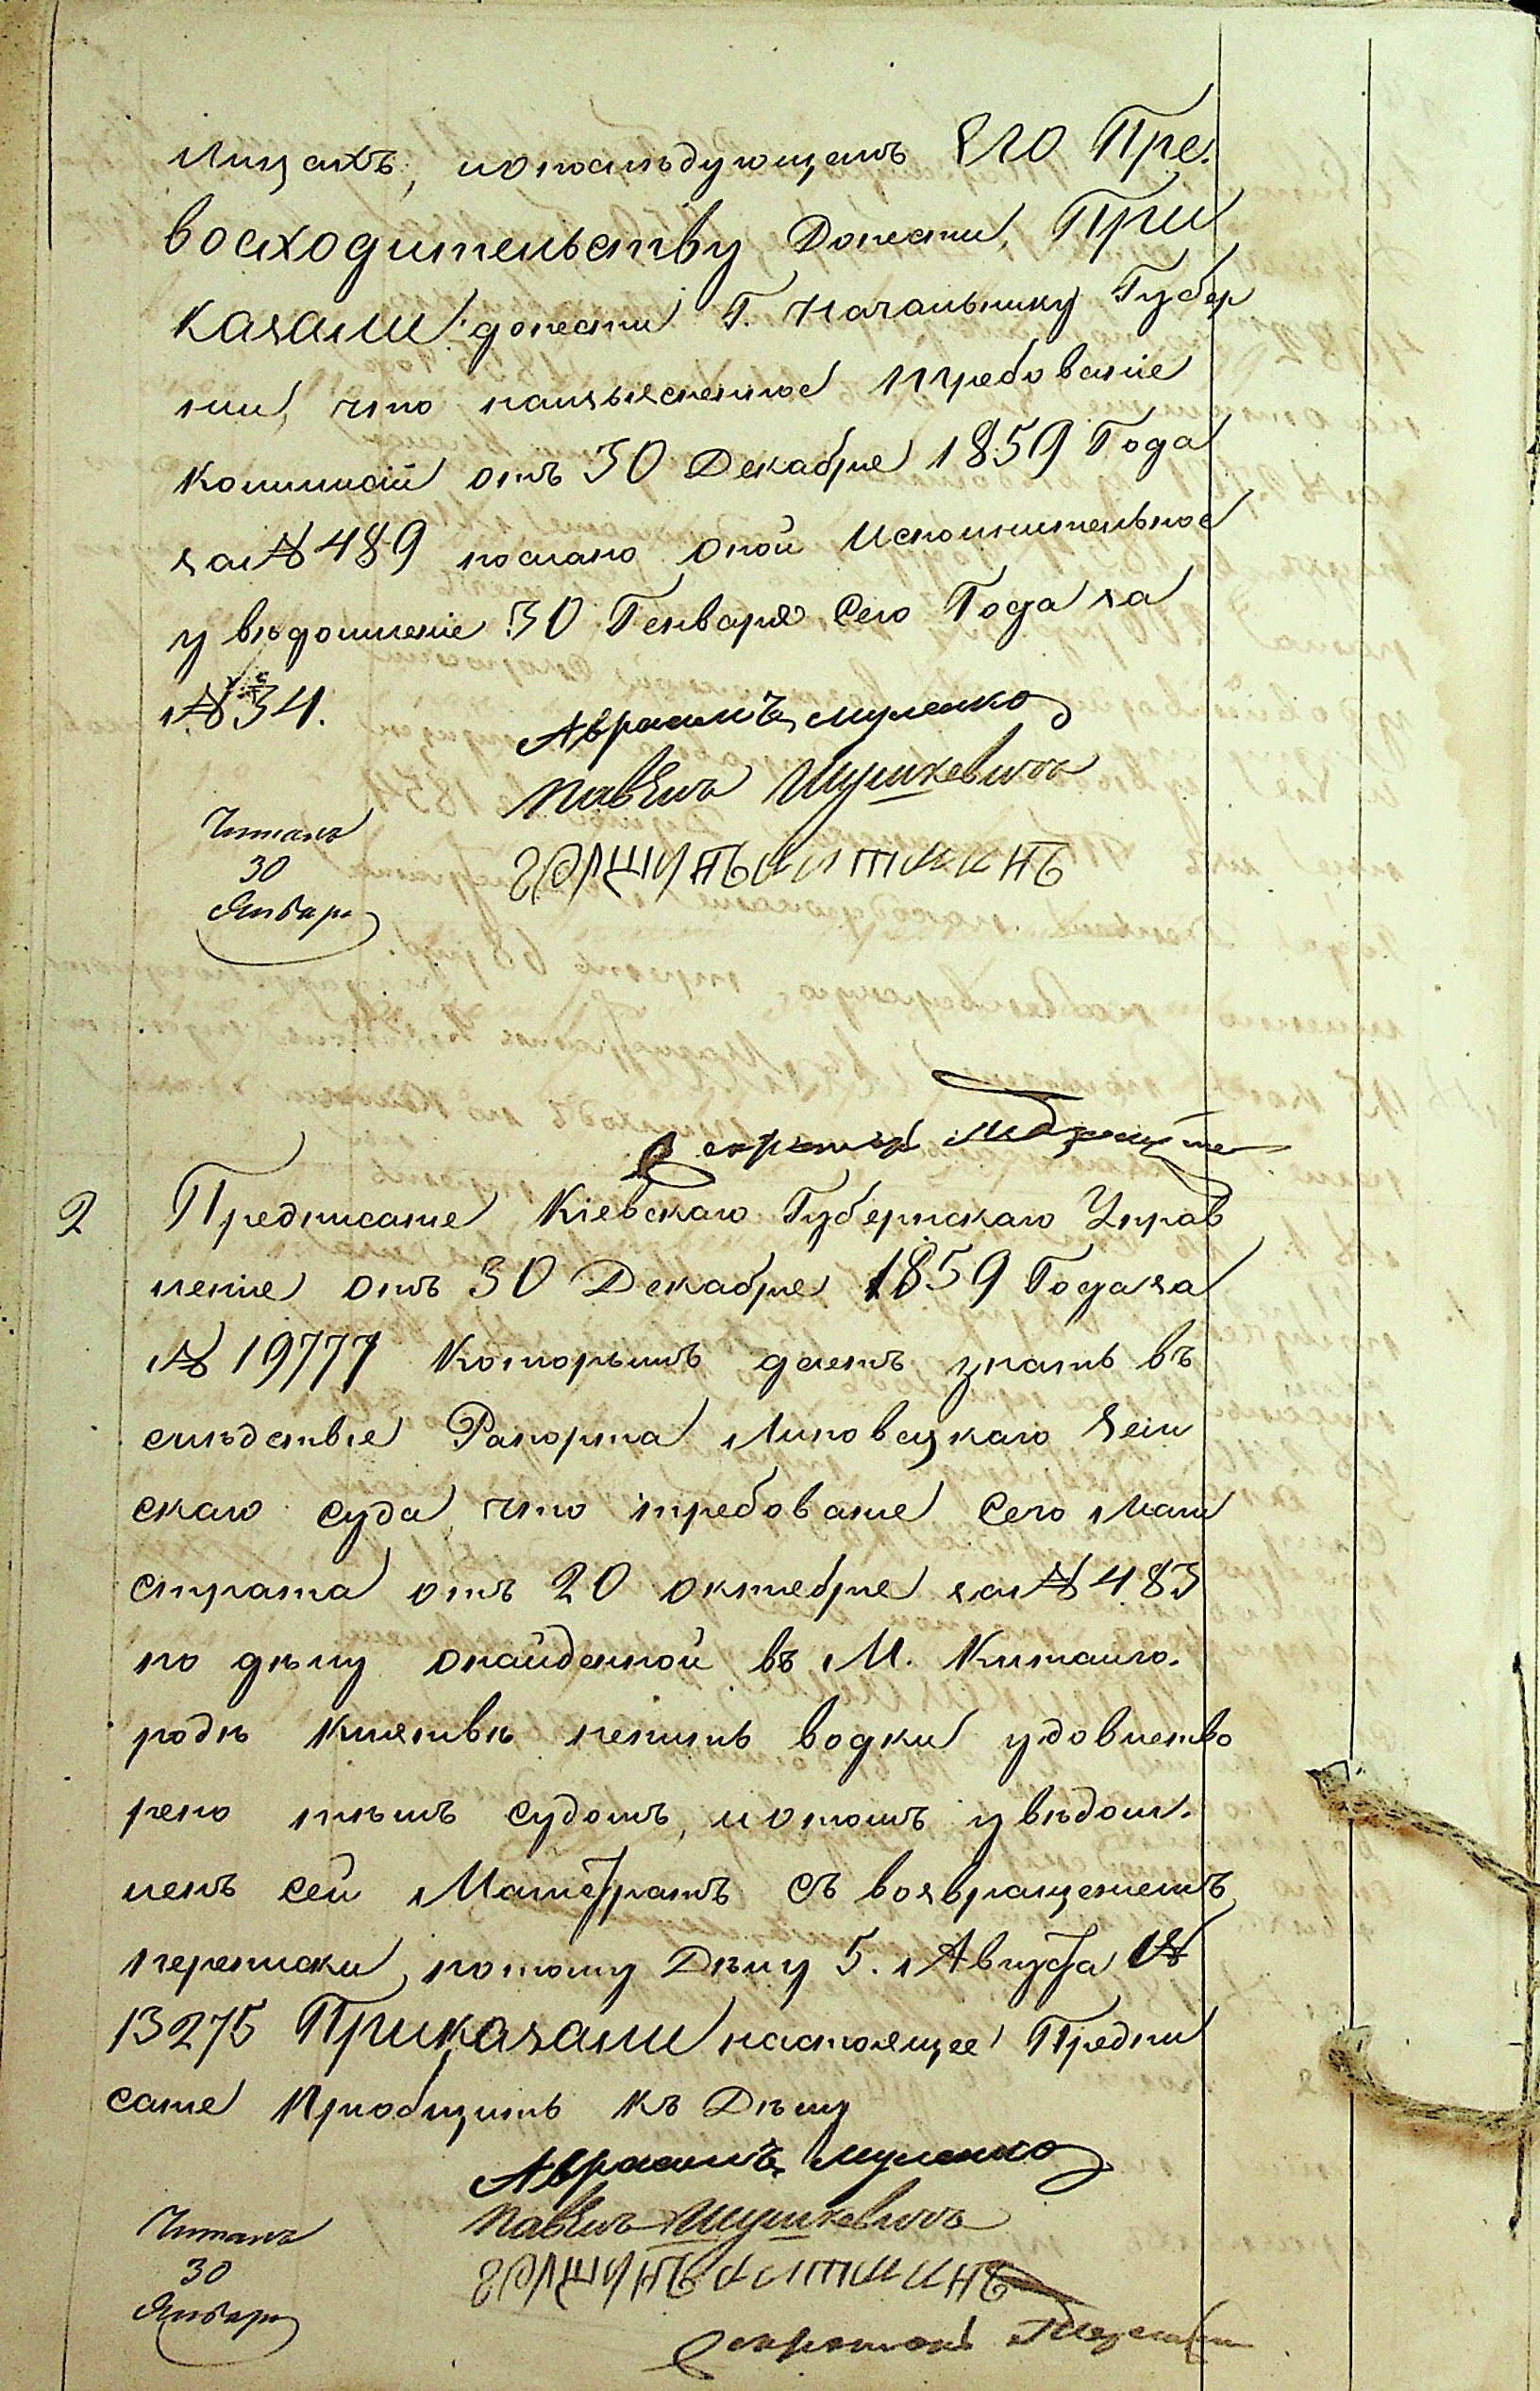 лицахъ, ипослѣдующемъ Его Пре-
восходительству донести, При
казали: донести Г. Начальнику Губер
нии, что наизъясненное требование
Коммисіи отъ 30 Декабря 1859 Года
за № 489 послано оной Исполнительное
увѣдомленіе 30 Генваря Сего Года за
№ 34.
Аврамъ
Павелъ Шушкевичъ
Читалъ
30
Январ
Секретарь
2 Предписаніе Кіевскаго Губернскаго Управ
ленія отъ 30 Декабря 1859 Года за
№ 19777 Которымъ даетъ знать въ
слѣдствіе Рапорта Липовецкаго Зем
скаго суда, что требованіе Сего Маги
страта отъ 20 октября за № 483
по дѣлу онайденной въ М. Китайго-
родѣ Кляятвѣ питъ водки удовлетво
рено тѣмъ судомъ, иотомъ увѣдом-
ленъ сей Магистратъ съ возвращеніемъ
переписки, потому Дѣлу 5. Августа №
13275 Приказали настоящее Предпи
саніе Приобщить къ Дѣлу
Аврамъ
Павелъ Шушкевичъ
Читалъ
30
Январ
Секретарь